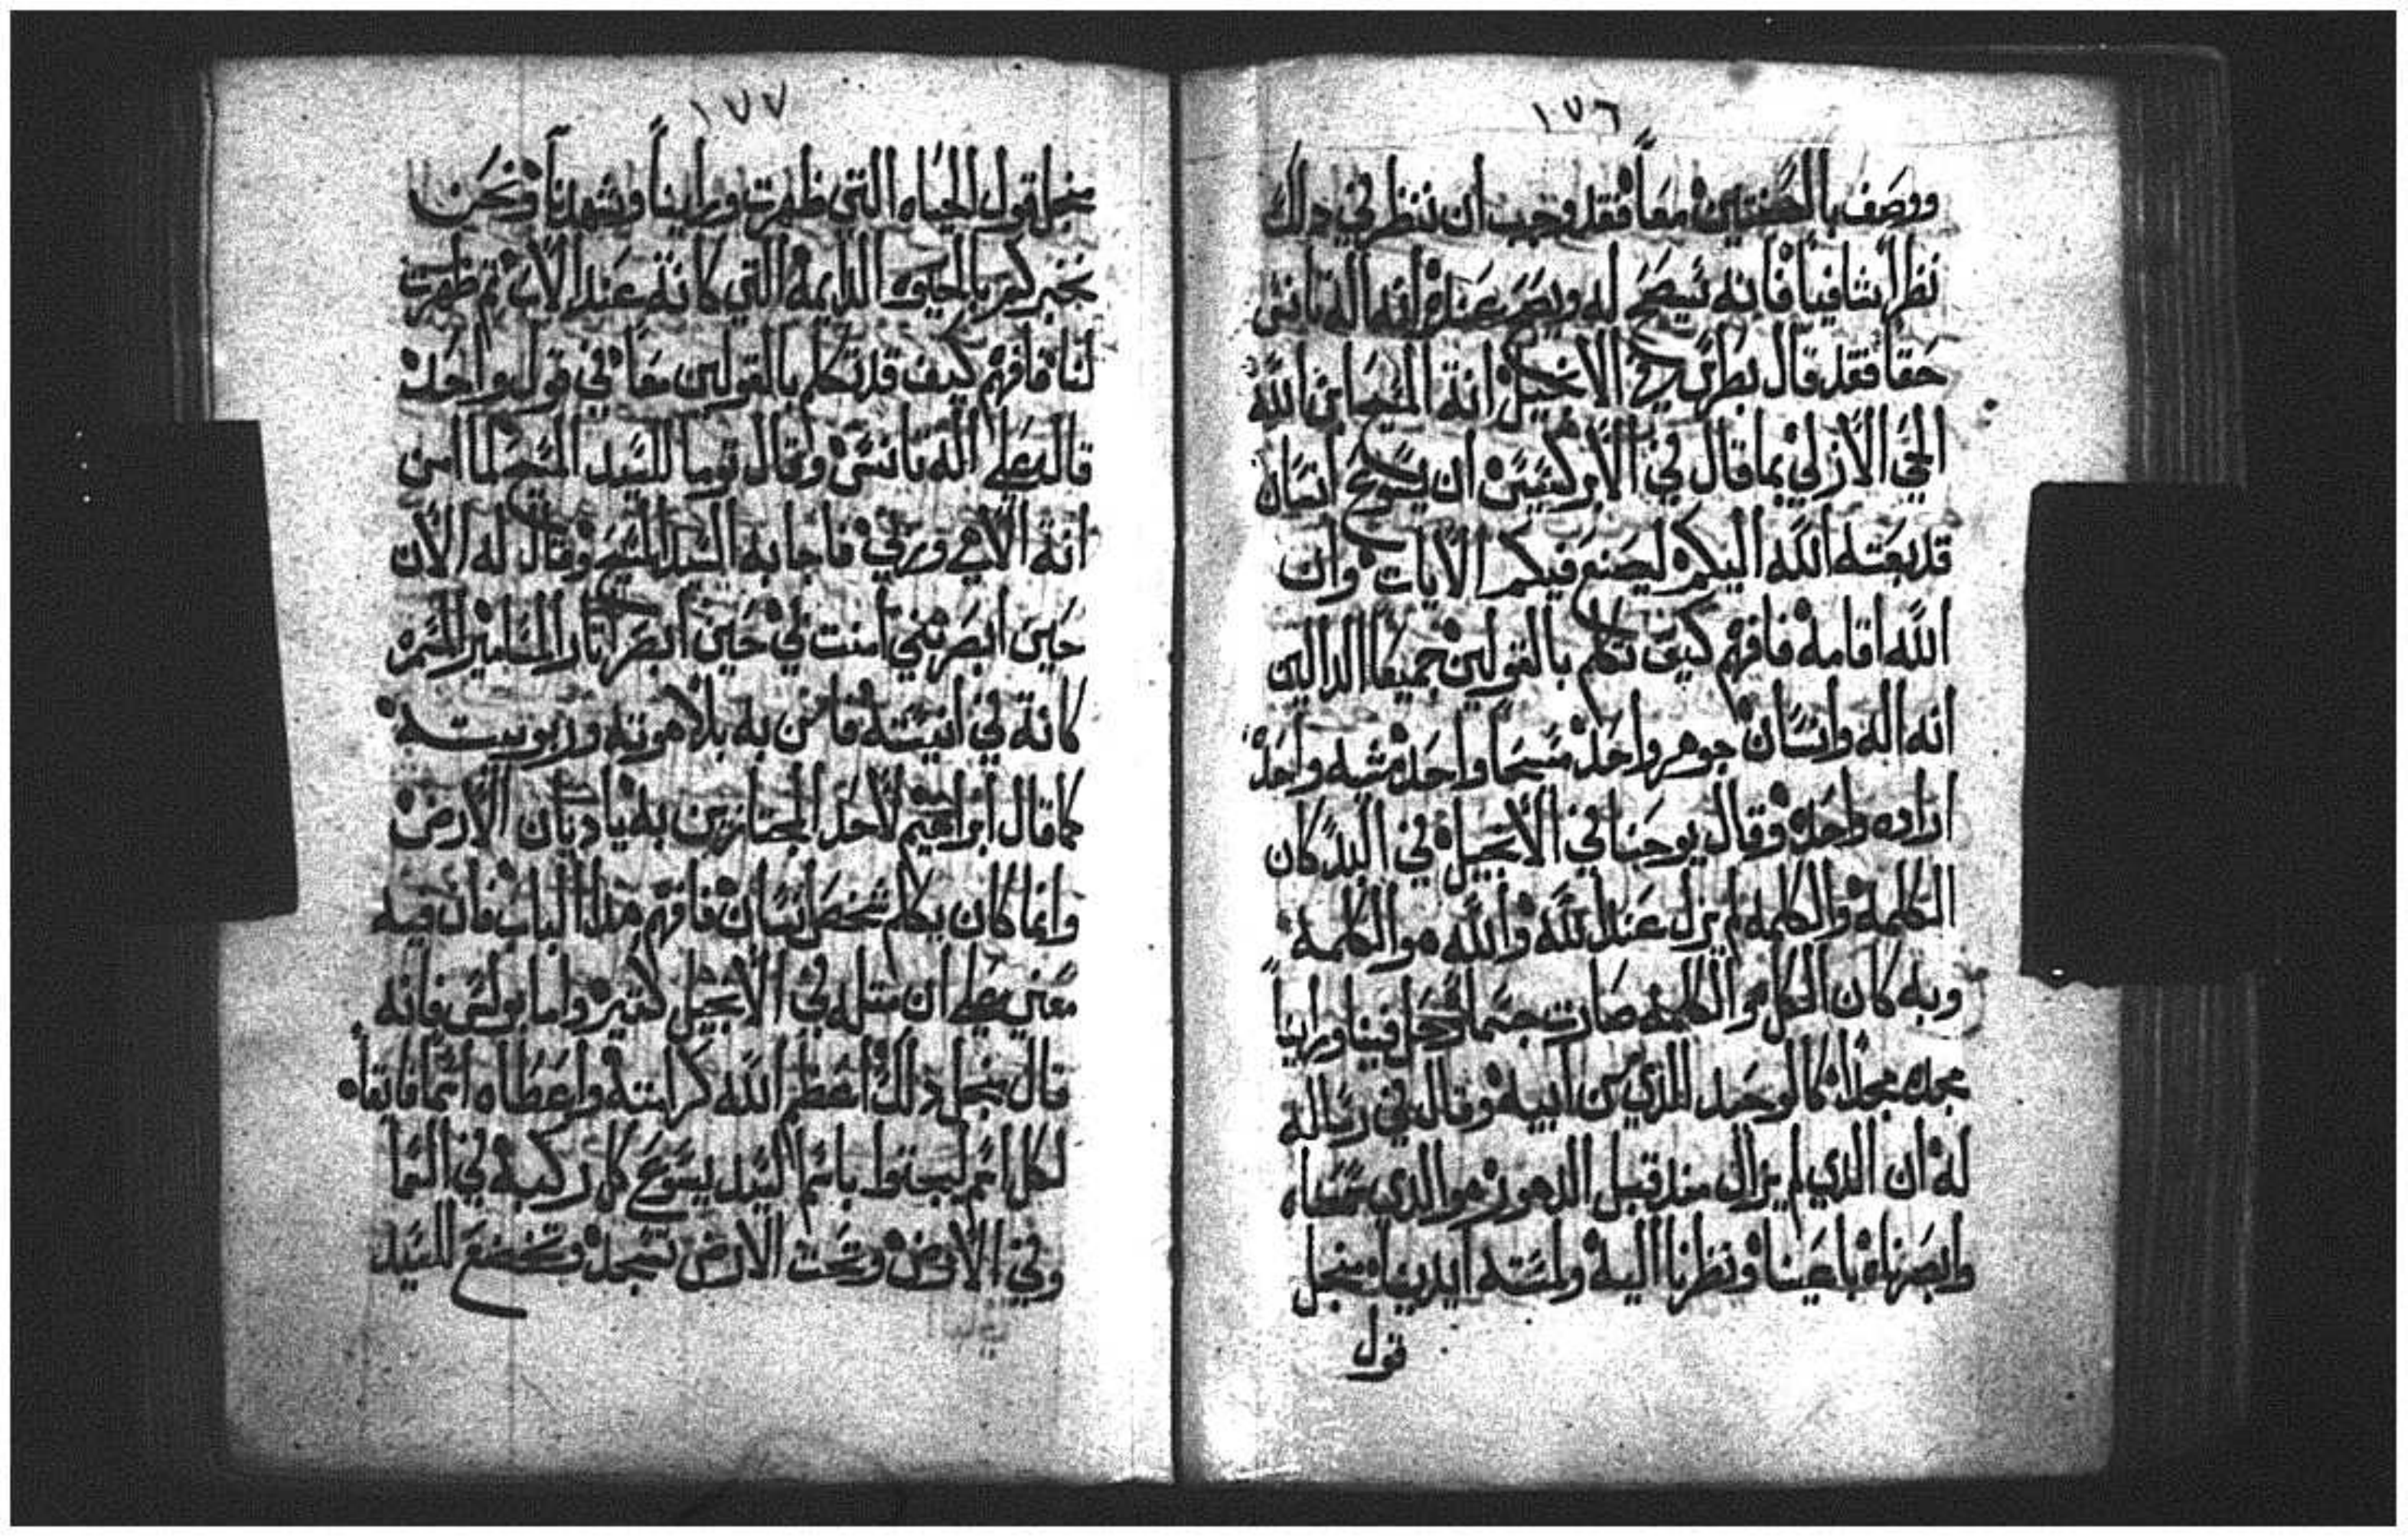 ١٧٦
ووصف بالصفتين معاً فقد وجب ان ننظر في دلك
نظراً شافياً فانه يتضح له ويصح عنده انه اله تانس
حقاً فقد قال بطرس في الانجيل انة المسيح ابن الله
الحي الازلي بما قال في الابركسيس ان يسوع انسان
قد بعته الله اليكم ليصنع فيكم الايات وان
الله اقامه فافهم كيف تكلم بالقولين جميعا الدالين
انه اله وانسان جوهر واحد مسيح واحد مشيه واحده
اراده واحده وقال يوحنا في الانجيل في البدء كان
الكلمة والكلمه لم يزل عند الله والله هو الكلمة
وبه كان الكل والكلمه صارت جسماً وحل فينا وراينا
مجده مجداً كالوحيد الذي من ابيه وقال في رساله
له ان الدي لم يزال مند قبل الدهور هو الدي سمعناه
وابصرناه باعيننا ونظرنا اليه ولمسته ايدينا منجل
قول
١٧٧
منجل قول الحياه التي ظهرت وراينا وشهدنا ونحن
نخبركم بالحيوه الدايمه التي كانة عند الاب تم ظهرت
لنا فافهم كيف قد تكلم بالقولين معاً في قول واحد
قال بعلي اله تانس وقال توما للسيد المسيح لما امن
انة الاهي وربي فاجابه السيد المسيح وقال له الان
حين ابصرتني امنت بي حين ابصر اتار المسامير المسمره
كانة في انيسته فامن به بلاهوته وربوبيته
كما قال ابراهيم لاحد المجتازين به يا ديان الارض
وانما كان يكلم شخص انسان فافهم هدا الباب فان فيه
معني عظيم ان متله في الانجيل كتير واما بولس فانه
قال منجل دلك اعظم الله كرامته واعطاه اسماً فايقاً
لكل اسم ليجتوا باسم السيد يسوع كل ركبة في السما
وفي الارض وتحت الارض تسجد وتخضع للسيد